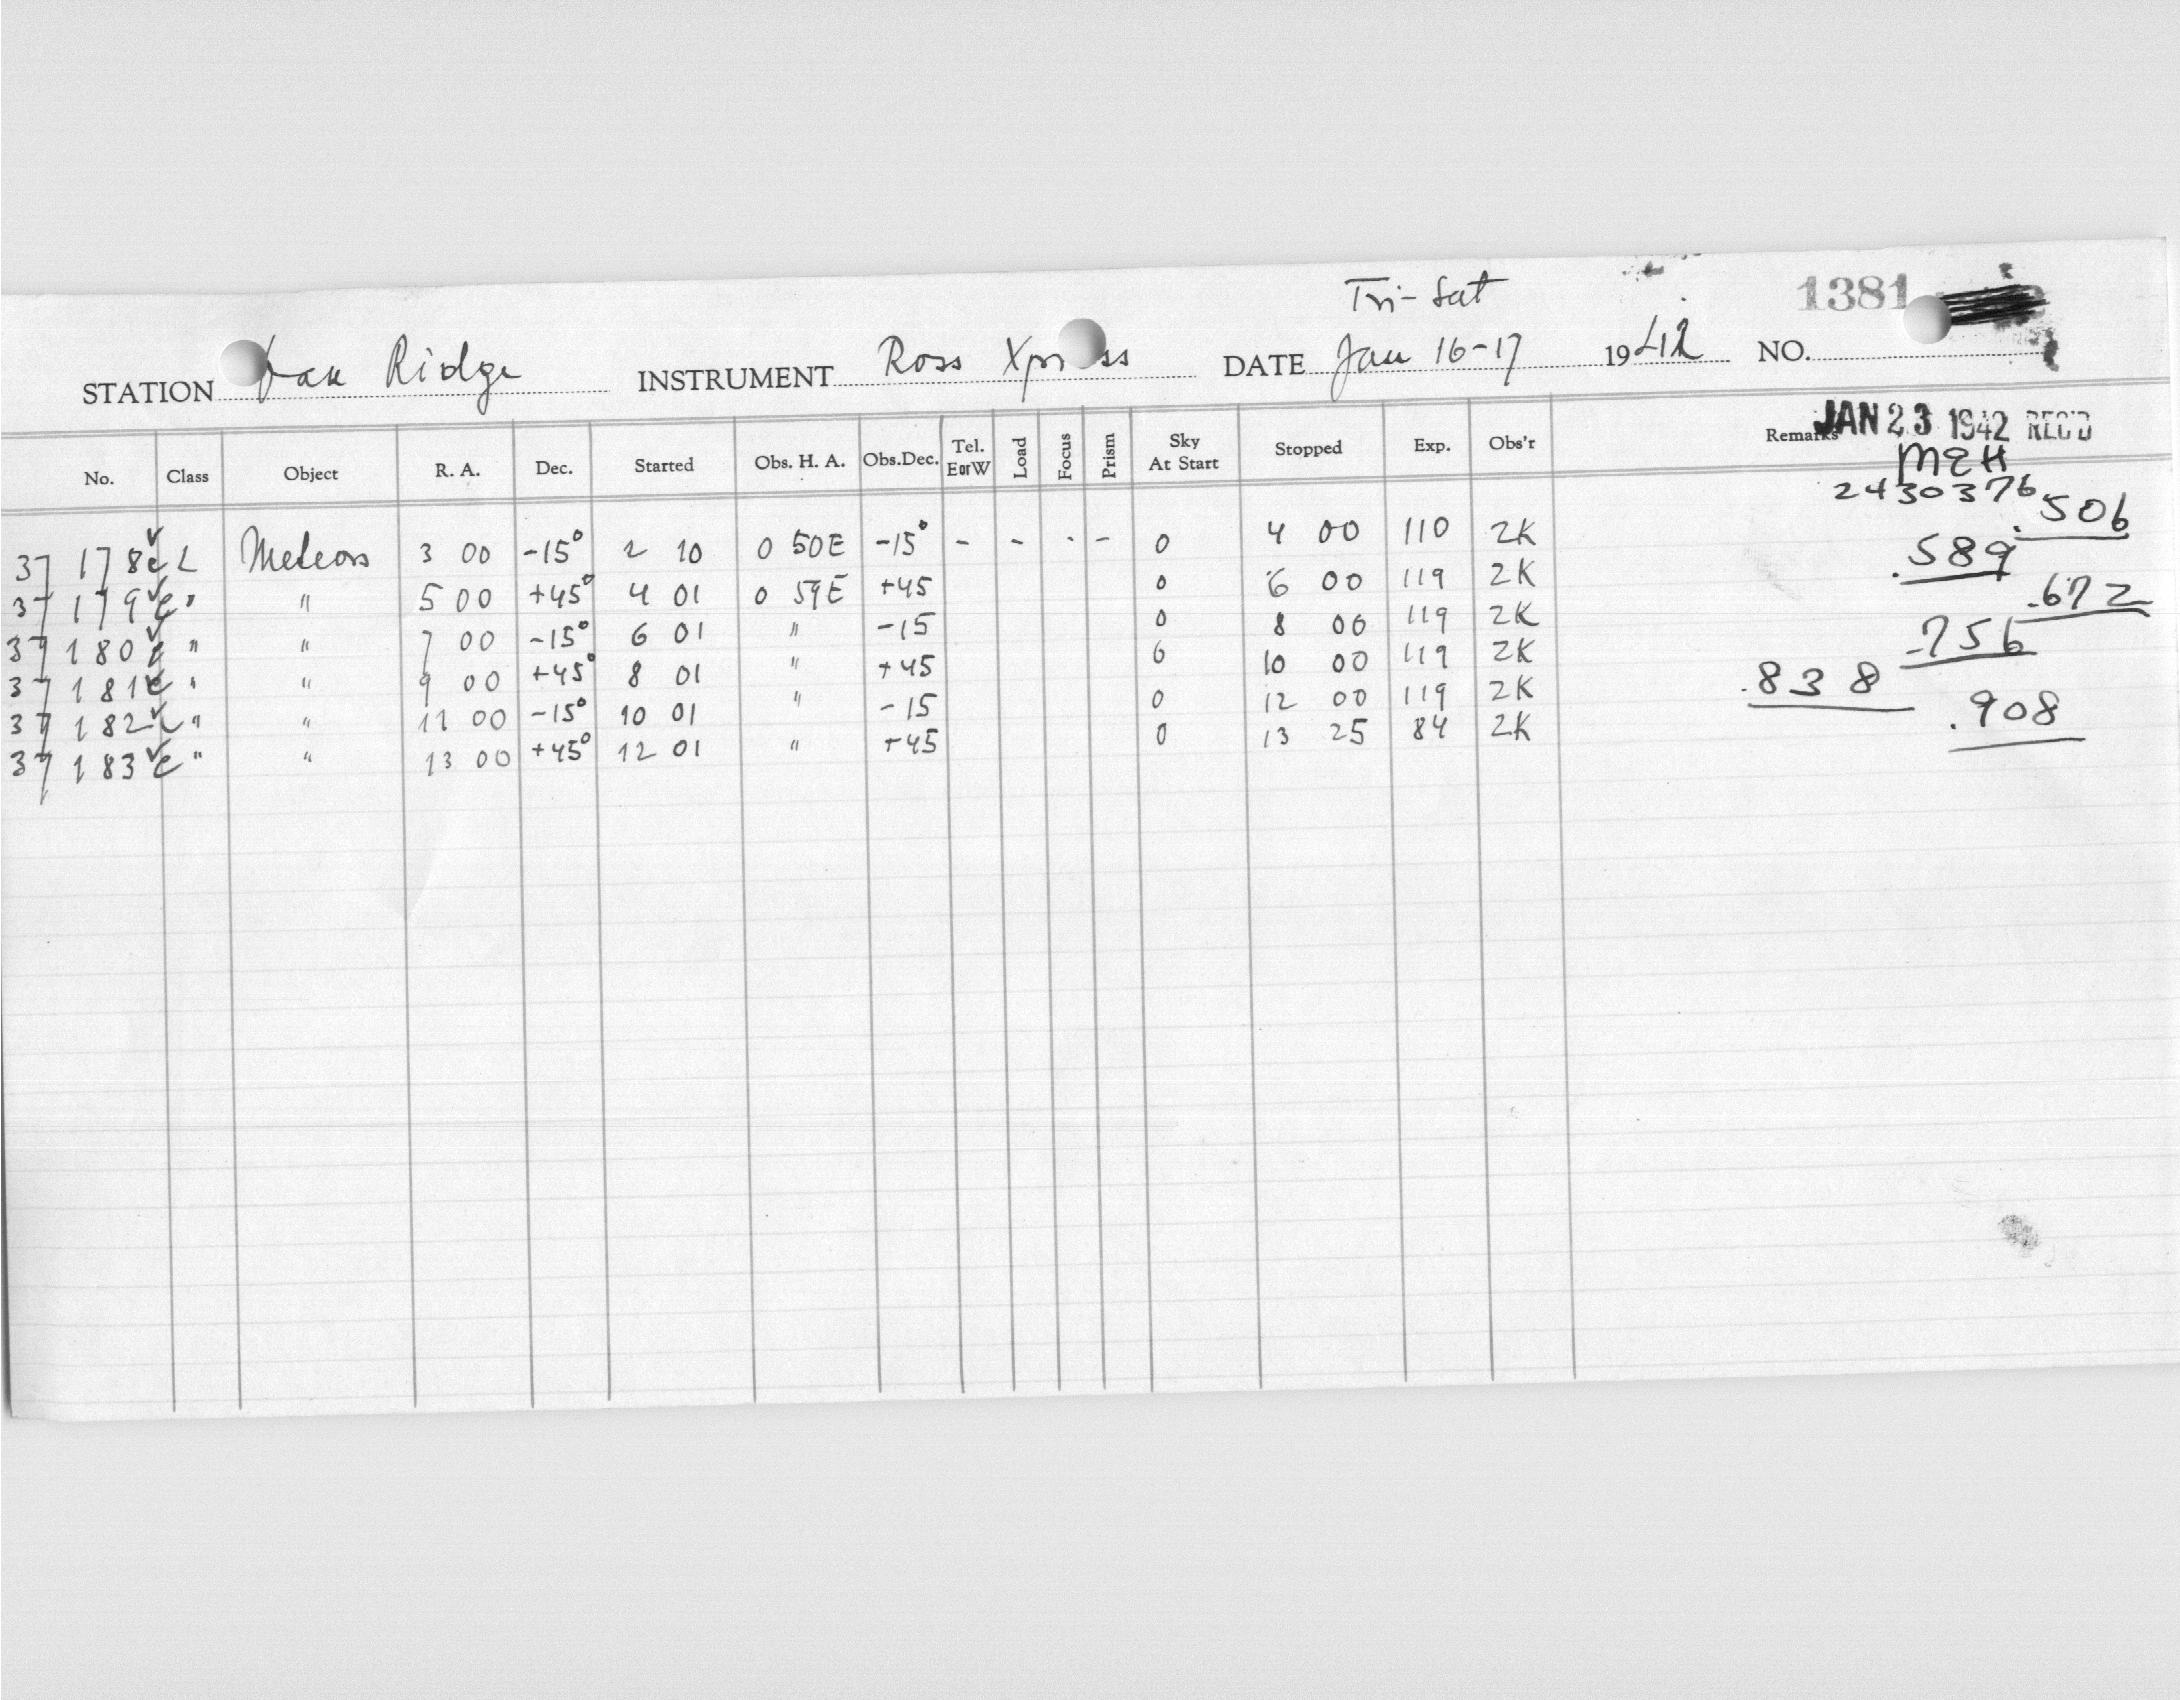 Fri-Sat 1381
STATION Oak Ridge INSTRUMENT Ross Xpress DATE Jan 16-17 1942 NO.
No. Class Object R. A. Dec. Started Obs. H. A. Obs.Dec. Tel. E or W Load Focus Prism Sky At Start Stopped Exp. Obs'r Remarks JAN 23 1942 REC'D
MEH
2430376
37 178 ✓ L Meteors 3 00 -15° 2 10 0 50E -15° - - - - 0 4 00 110 ZK .506
37 179 ✓ " " 5 00 +45° 4 01 0 59E +45 0 6 00 119 ZK .589
37 180 ✓ " " 7 00 -15° 6 01 " -15 0 8 00 119 ZK .672
37 181 ✓ " " 9 00 +45° 8 01 " +45 0 10 00 119 ZK .756
37 182 ✓ " " 11 00 -15° 10 01 " -15 0 12 00 119 ZK .838
37 183 ✓ " " 13 00 +45° 12 01 " +45 0 13 25 84 ZK .908